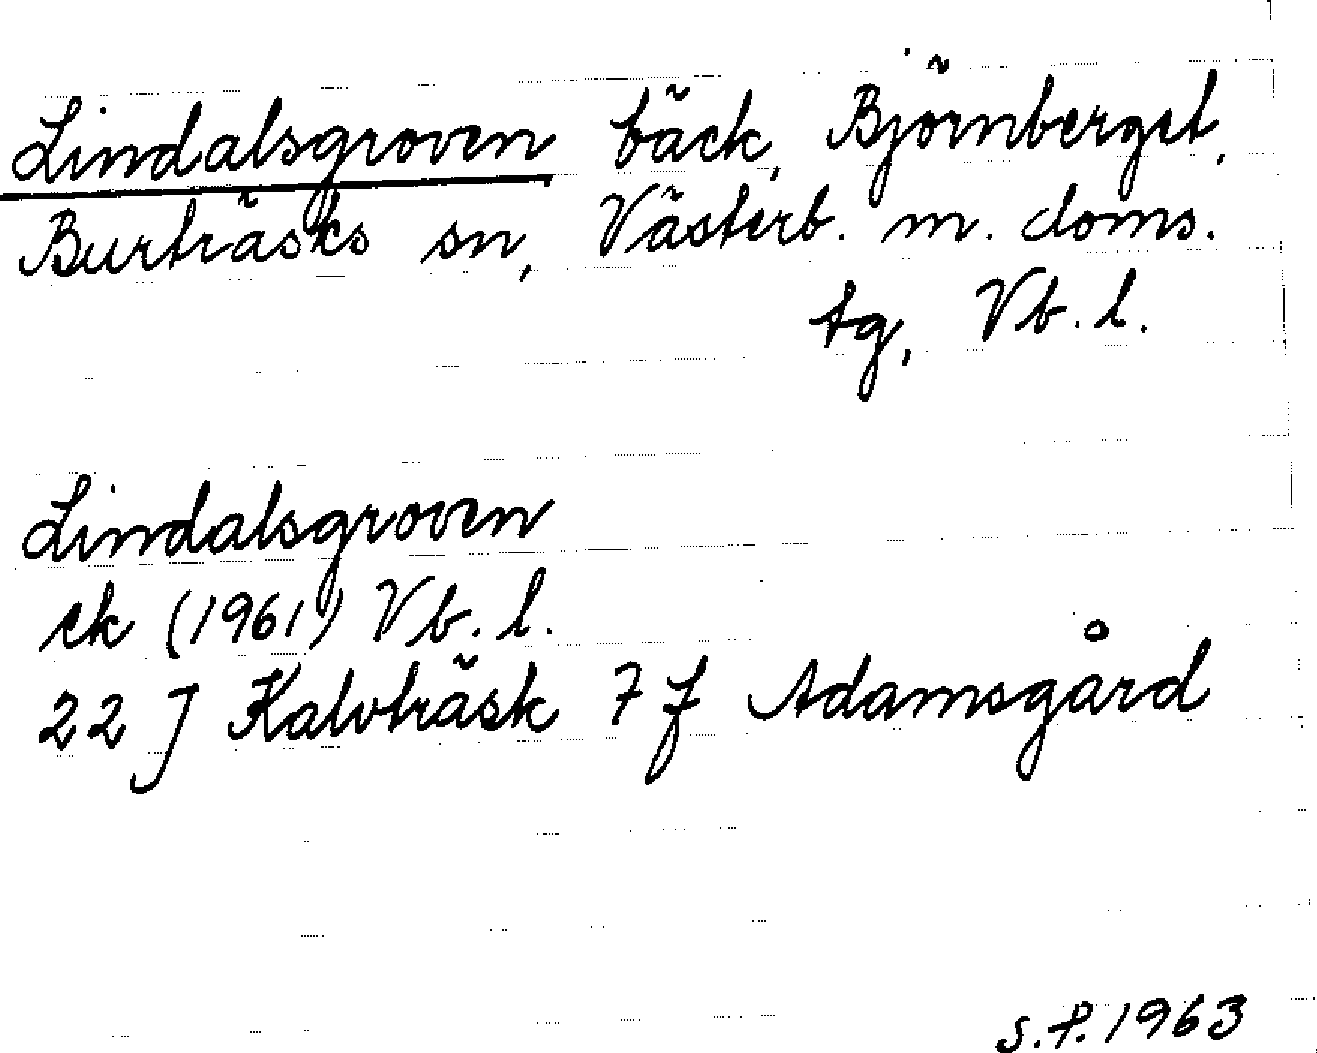 Lindalsgroven bäck, Björnberget,
Burträsks sn, Västerb. m. doms.
tg, Vb. l.
Lindalsgroven
ek (1961) Vb. l.
22 J Kalvträsk 7 f Adamsgård
S.f. 1963